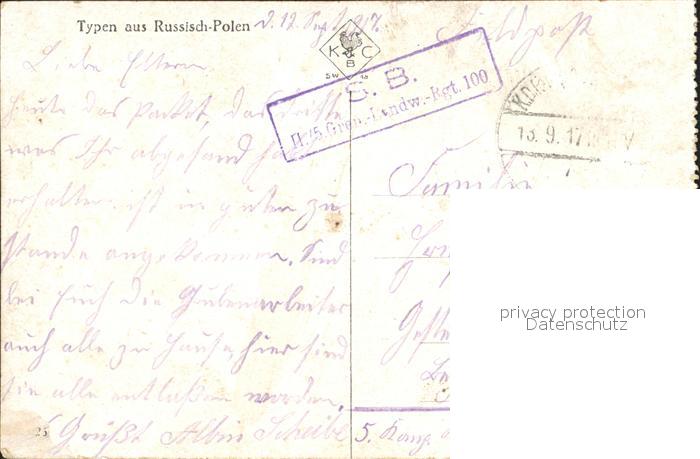 Typen aus Russisch-Polen
D. 12. Sep. 1917.
K C
B
Feldpost
S. B.
II./5. Gren.-Landw.-Rgt. 100
13. 9. 17
Liebe Eltern.
Heute das Packet, das dritte
was Ihr abgesand
erhalten ist in guten zu-
stande angekommen. Sind
bei Euch die Grubenarbeiter
auch alle zu Hause, hier sind
sie alle entlaßen worden.
Grüßt Albin Scheibe
Familie
25
5. Komp
privacy protection
Datenschutz